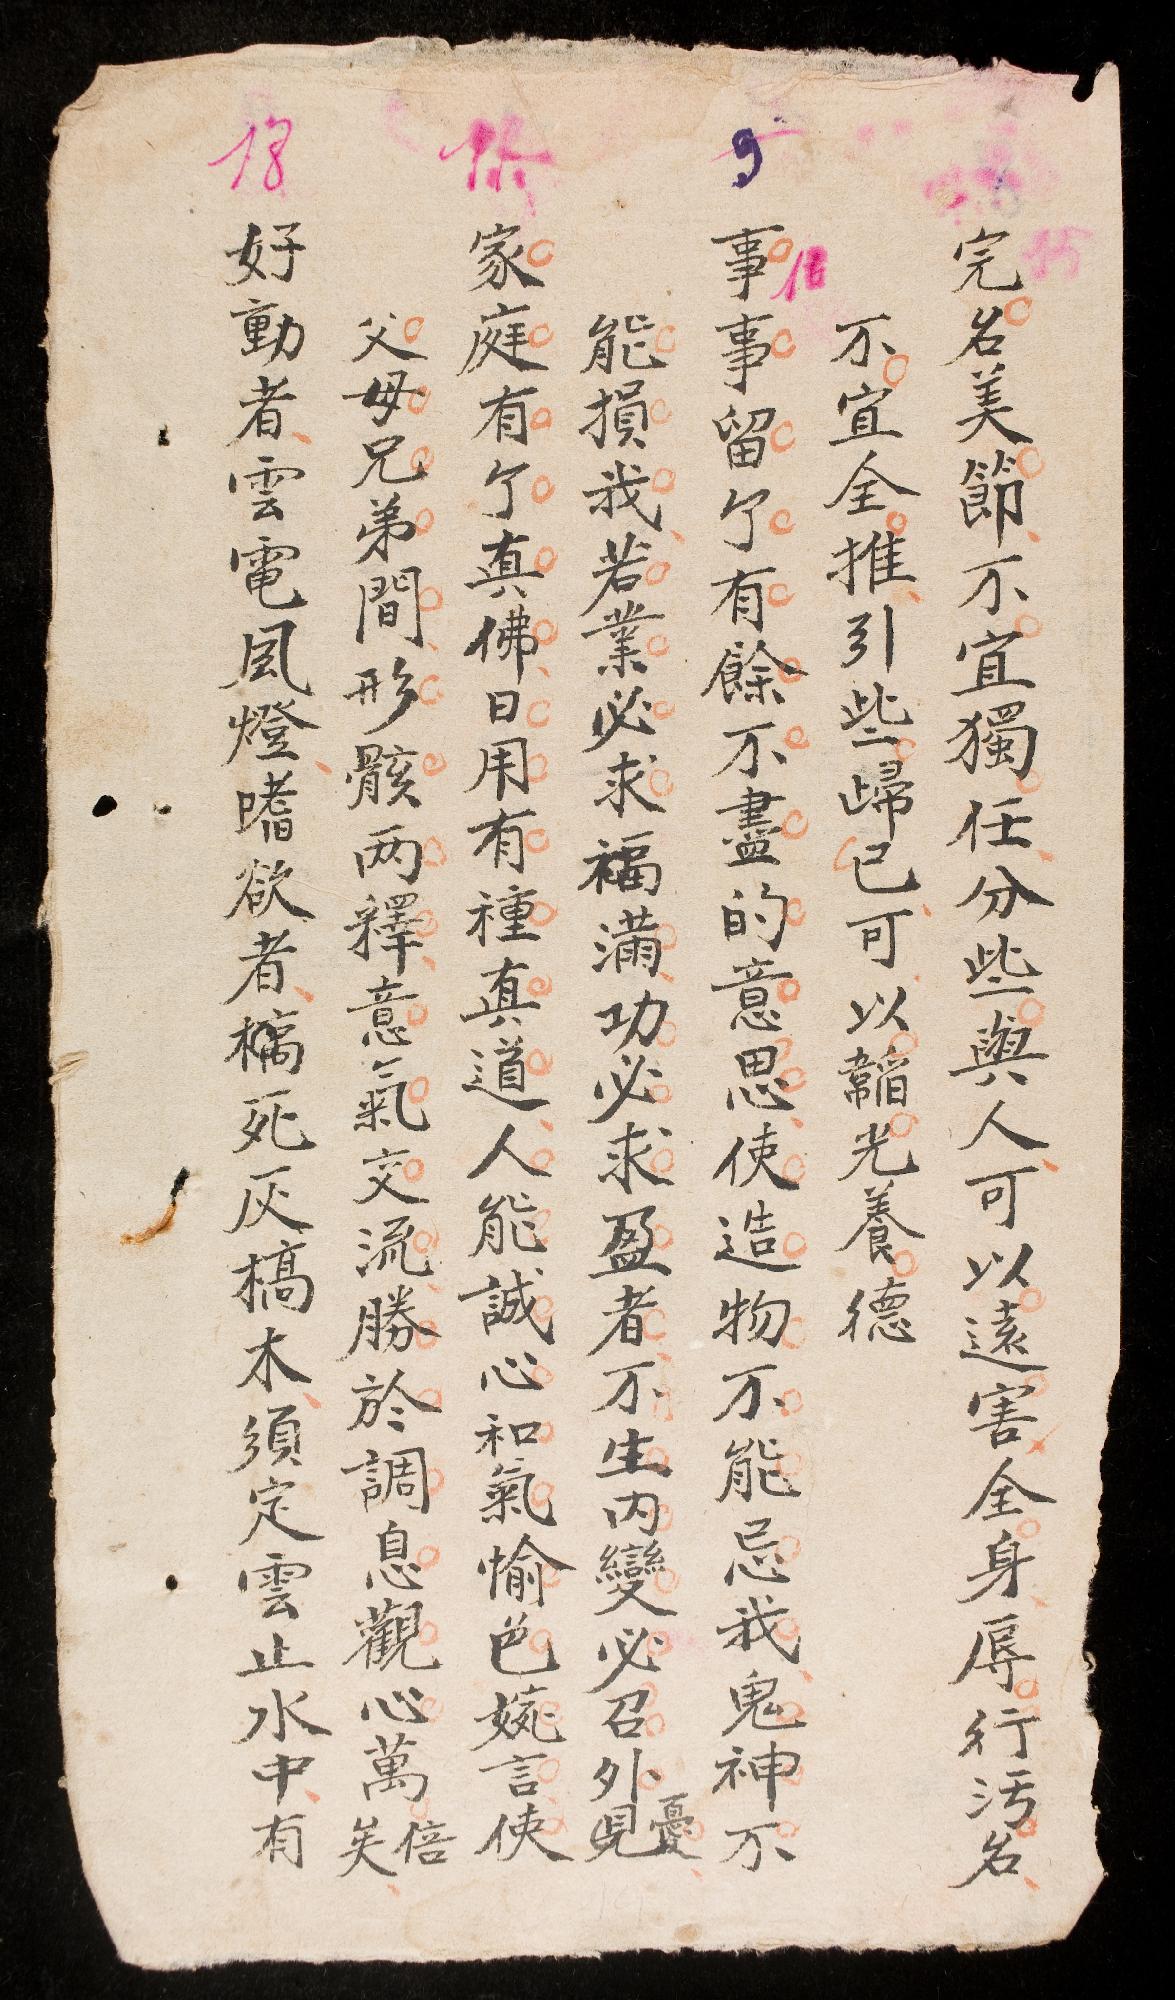 完名美節不宜獨任分些與人可以遠害全身辱行污名
不宜全推引些歸已可以韜光養德
事事留个有餘不盡的意思使造物不能忌我鬼神不
能損我若業必求福滿功必求盈者不生內變必召外憂見
家庭有个真佛日用有種真道人能誠心和氣愉色婉言使
父母兄弟間形骸两釋意氣交流勝於調息觀心萬倍矣
好動者雲電風燈嗜欲者槁死灰槁木須定雲止水中有